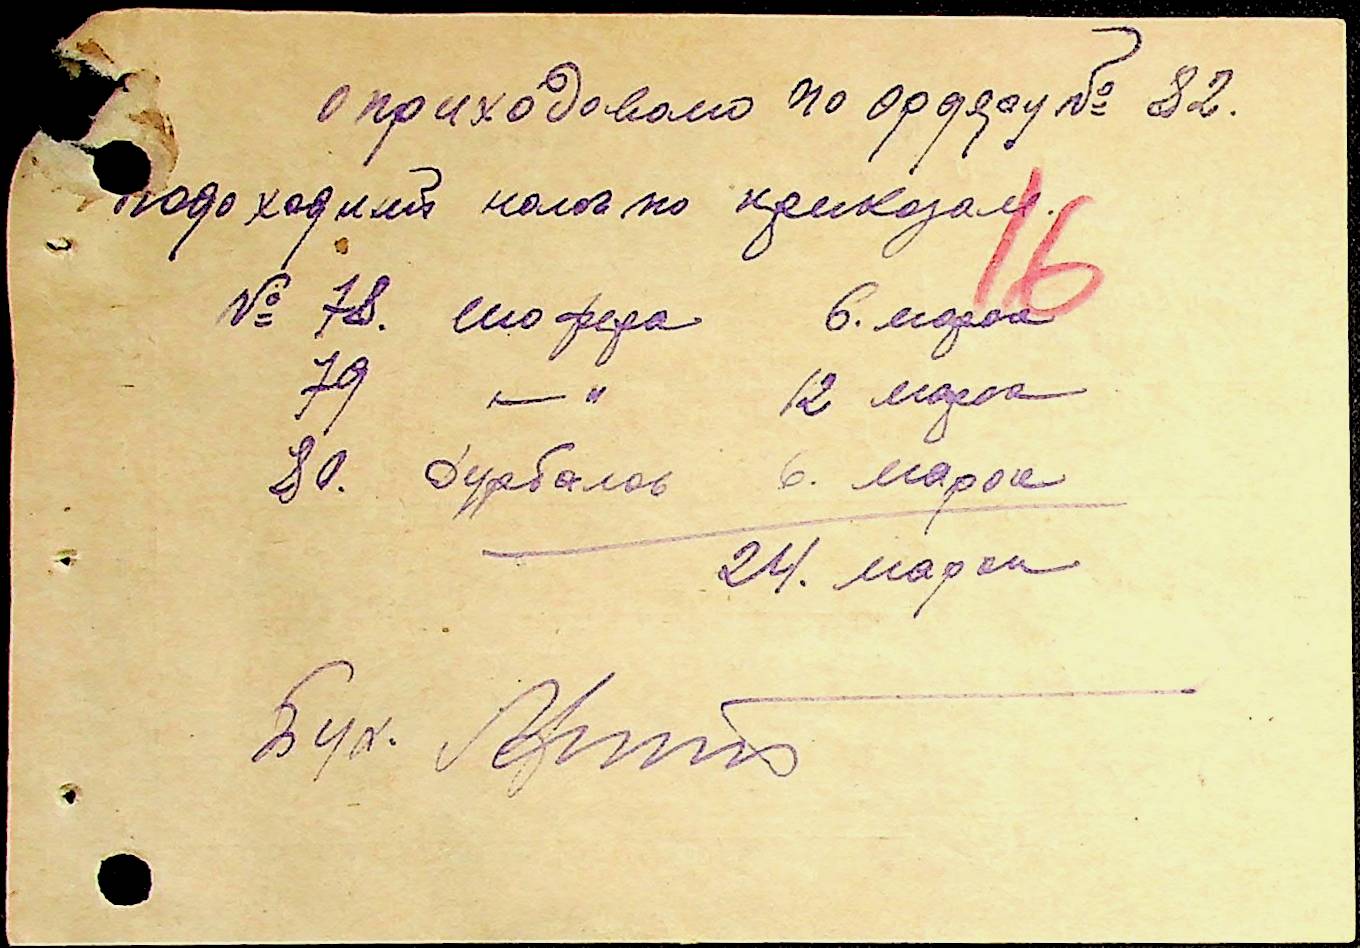 оприходовано по ордеру № 82.
подоходний налог по приказам.
16
№ 78. шофера 6. марок
79 — " 12 марок
80. 6. марок
24. марок
Бух.